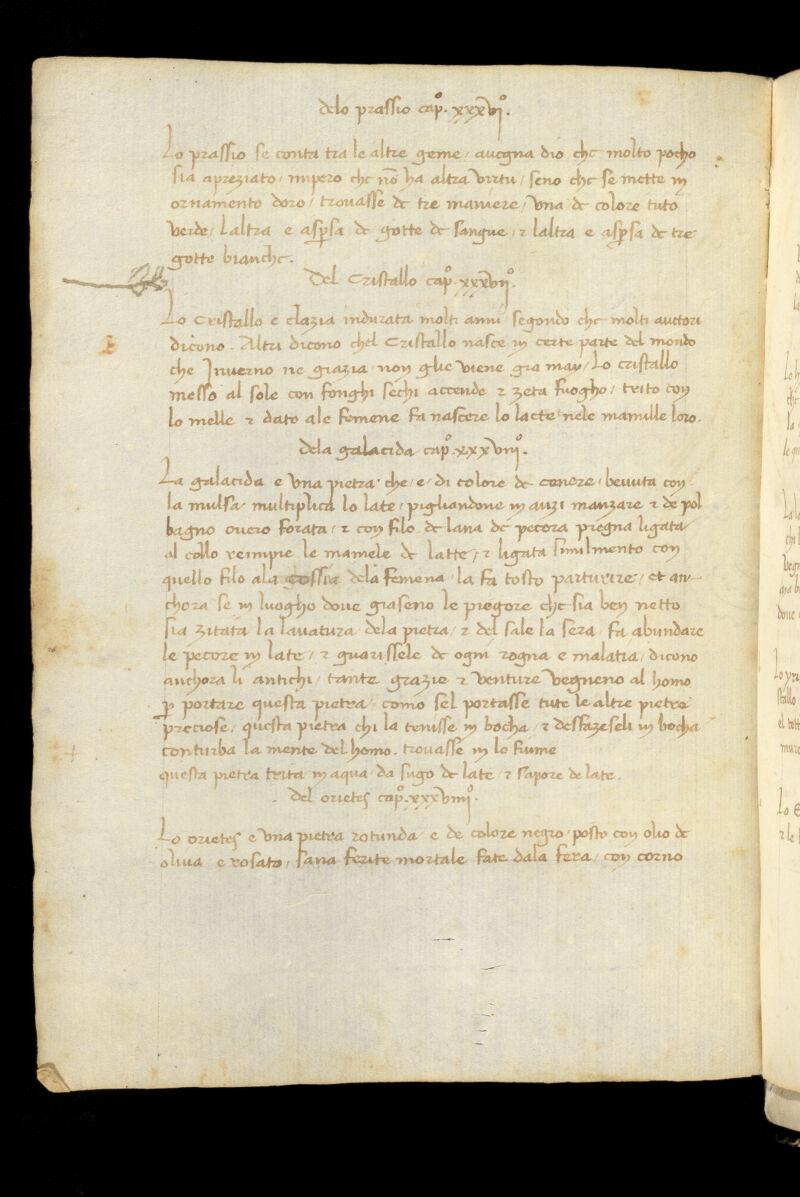 delo prassio cap̊. xxxvi̊.
Lo prassio se conta tra le altre geme / auegna dio che molto pocho
sia apreziato / impero che nō ha altra virtu / seno che se mette in
ornamento doro / trouasse de tre maniere / vna de colore tuto
verde / laltra e asp̱sa de gotte de sangue / ⁊ laltra e asp̱sa de tre
gotte bianche.
Del Cristallo cap̊. xxxvii̊.
Lo Cristallo e clazia indurata molti anni segondo che molti auctori
dicono. Altri dicono chel Cristallo nasce in certe parte del mondo
che Inuerno ne giazia non glie viene gia mai / Lo cristallo
messo al sole con fonghi sechi accende ⁊ zeta fuogho / trito con
lo melle ⁊ dato ale femene fa nascere lo lacte nele mamille loro.
dela galacida cap̊. xxxviii̊.
La galacida e vna pietra che / e / di colore de cenere / beuuta con
la mulsa multiplica lo late / pigliandone in anzi manzare ⁊ de pol
bagno ouero forata / ⁊ con filo de lana de pecora pregna ligata
al collo reimpie le mamele de latte / ⁊ ligata similmento con
quello filo ala cossia dela femena la fa tosto parturire / et an-
chora se in luogho doue giaseno le piegore che sia ben netto
sia zitata la lauatura dela pietra / ⁊ del sale la sera fa abundare
le pecore in late / ⁊ guarissele de ogni rogna e malatia / dicono
anchora li antichi / tante grazie ⁊ venture vegneno al homo
p̱ portare questa pietra / como sel portasse tute le altre pietre
preciose / questa pietra chi la tenisse in bocha / ⁊ desfazeseli in bocha
conturba la mente del homo. trouasse in lo fiume
questa pietra trita in aqua da sugo de late ⁊ sapore de late.
Del orietes cap̊. xxxviiii̊.
Lo orietes e vna pietra rotunda / e de colore negro / posto con olio de
oliua e rosato / sana ferite mortale fate dala fera / con corno